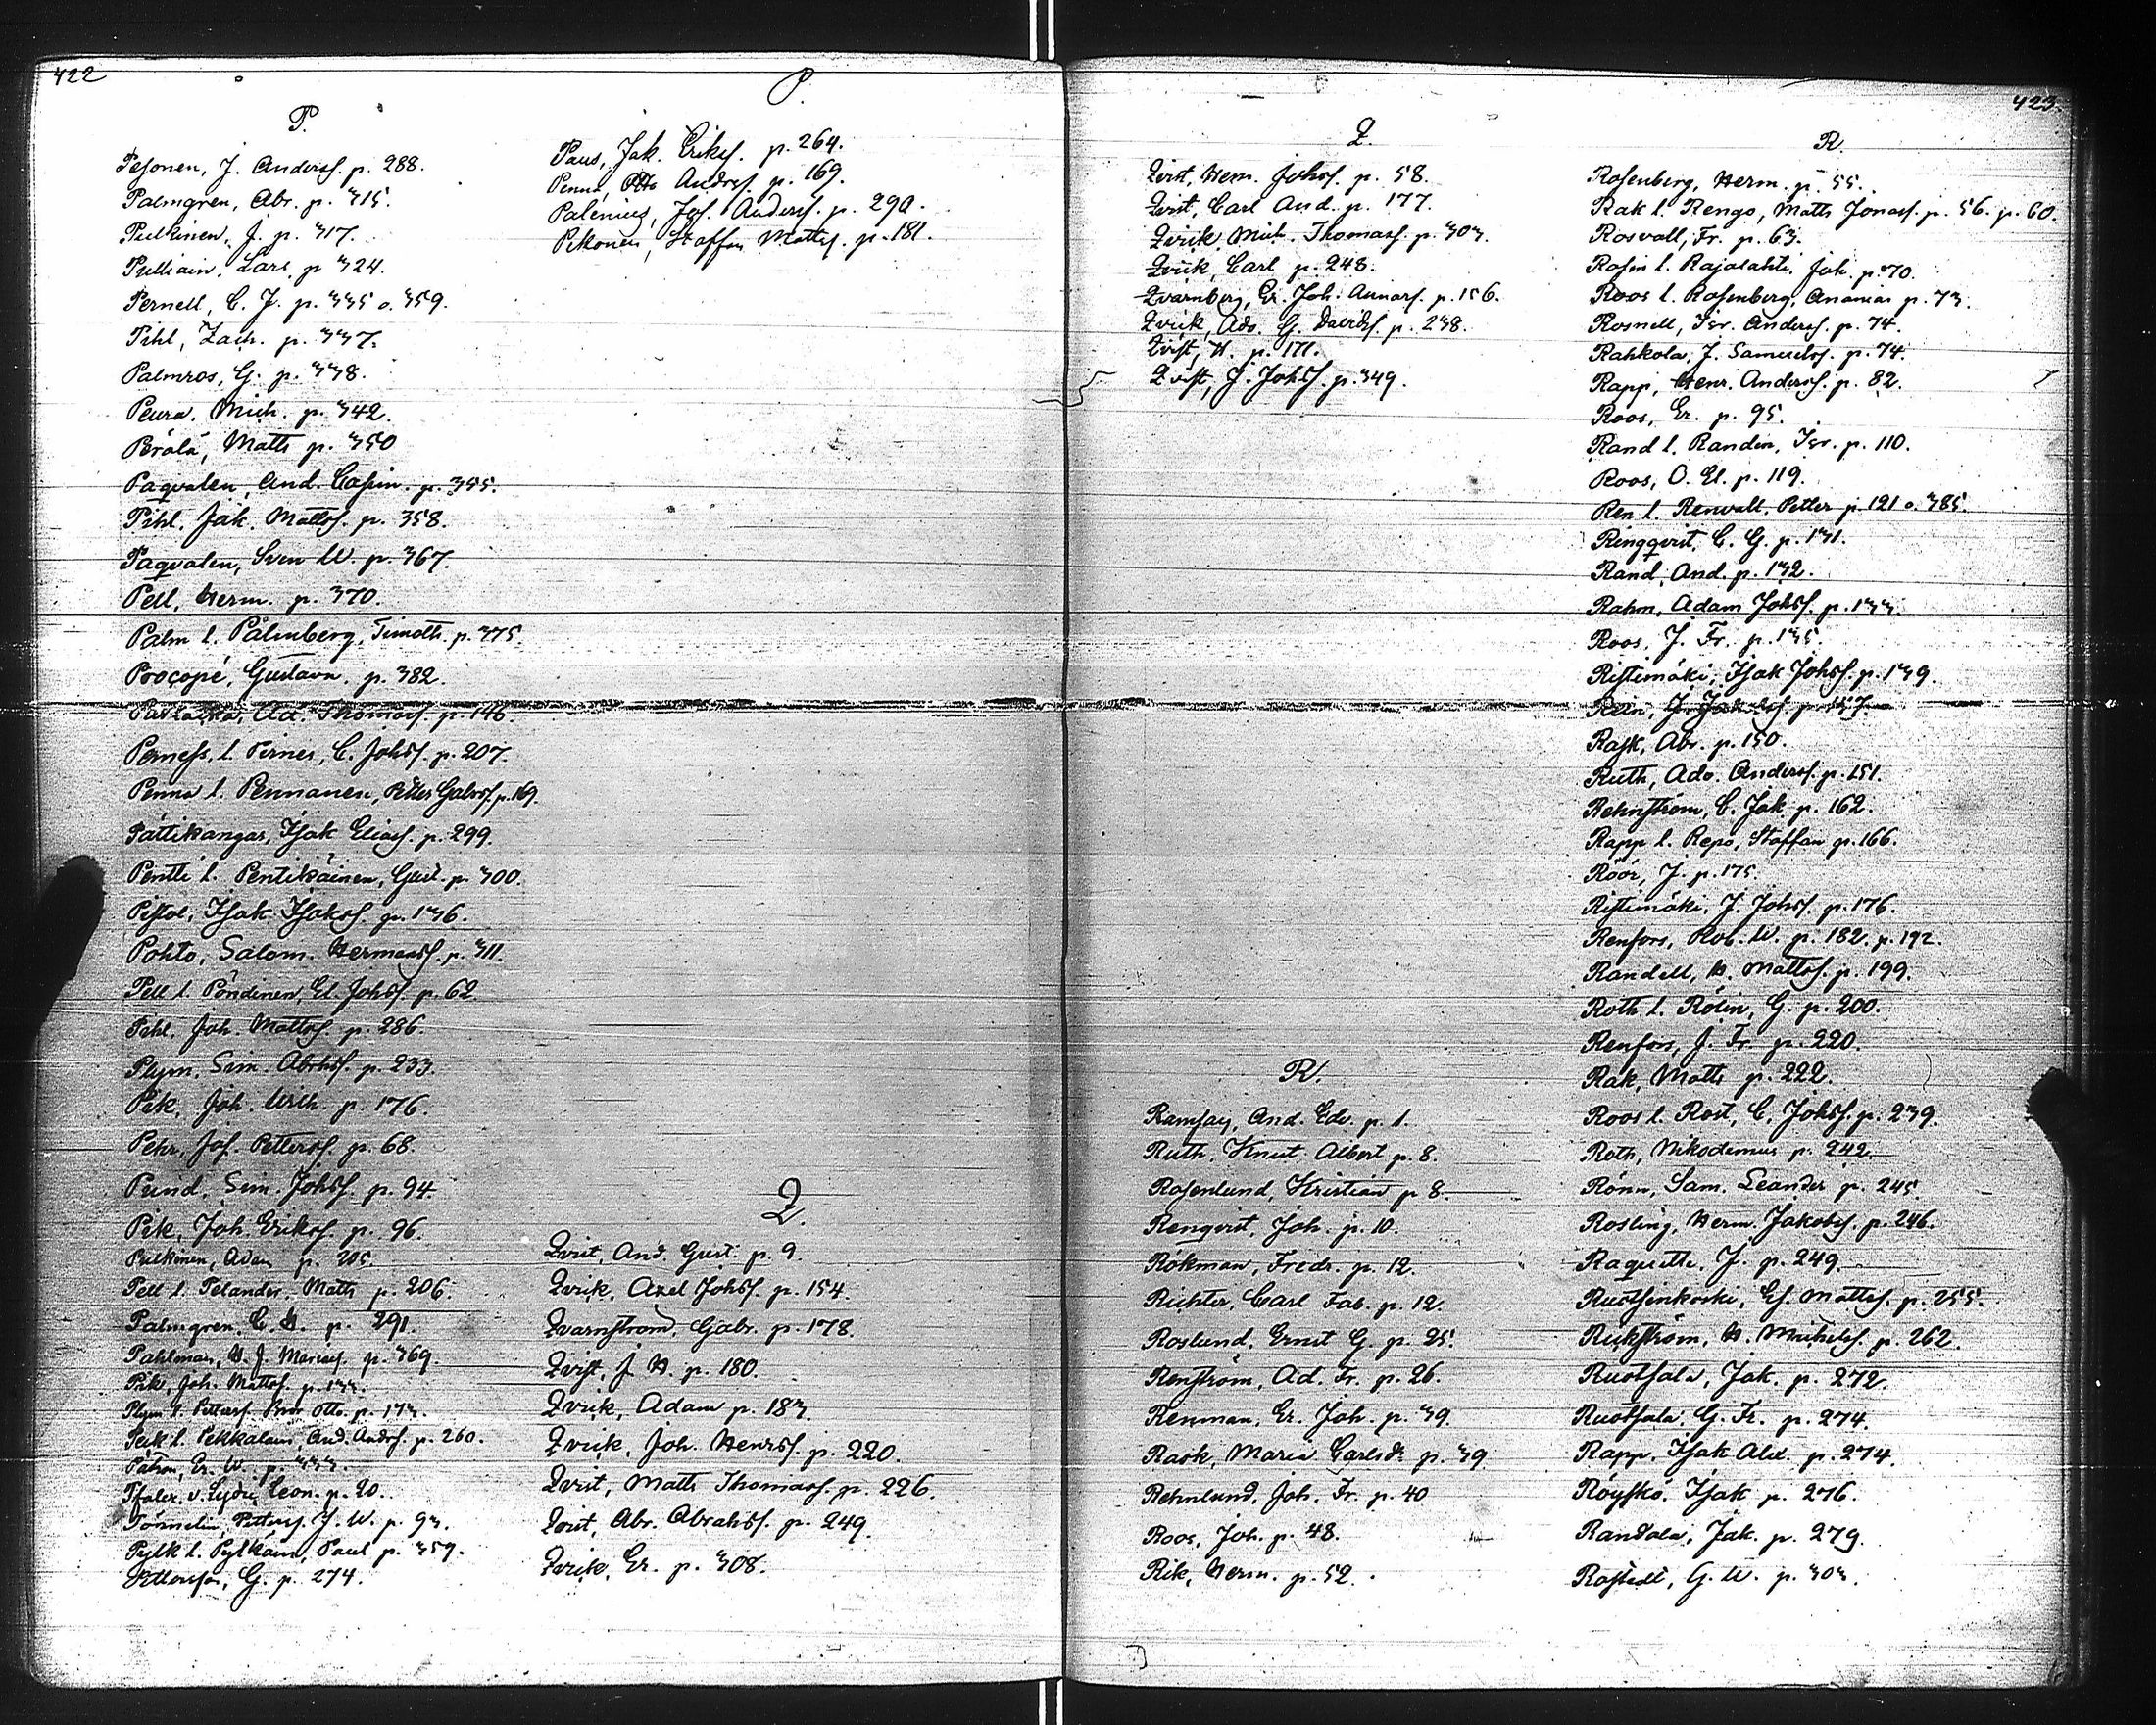 422
P.
Pesonen, J. Anderss. p. 288.
Palmgren, Abr. p. 315.
Pulkinen, J. p. 317.
Pulliain, Lars, p 324.
Pernell, C. J. p. 335 o. 359.
Pihl, Zach. p. 337.
Palmros, G. p. 338.
Peura, Mich. p. 342.
Perälä, Matts p. 350
Paqvalen, And. Casim. p. 355.
Pihl, Jak. Mattss. p. 358.
Paqvalen, Sven W. p. 367.
Pell, Herm. p. 370.
Palm l. Palmberg, Timoth. p. 375.
Procopé, Gustava. p. 382.
Ad. Thomass. p. 146.
Perness, l. Pirnes, C. Johss. p. 207.
Penna l. Pennanen, Petter Gabrss. p. 169.
Pättikangas, Isak Eliass. p. 299.
Pentti l. Pentikäinen, Gust. p. 300.
Pistol, Isak Isakss. p. 136.
Pohto, Salom. Hermanss. p. 311.
Pell l. Pöndinen, El. Johss. p. 62.
Pihl, Joh. Mattss. p. 286.
Plym, Sim. Abrhss. p. 233.
Pik, Joh. Urih. p. 176.
Pehr, Jos. Petterss. p. 68.
Pund, Sim. Johss. p. 94
Pik, Joh. Erikss. p. 96.
Pulkinen, Adam p. 205.
Pell l. Pelander, Matts p. 206.
Palmgren, C. H. p. 291.
Pahlman, H. J. Mariass. p. 369.
Pik, Joh. Mattss. p. 133.
Plym l. Petterss. Otto. p. 173.
Peik l. Pekkalain, And. Andrss. p. 260.
Patron, Er. W. p. 333.
Pfaler. v. Leon. p. 20.
Petterss. J. W. p. 93.
Pylk l. Pylkäin, Paul p. 359.
Pettersson, G. p. 274.
P.
Paus, Jak. Erikss. p. 264.
Penna, Otto Andrss. p. 169.
Palenius, Jos. Anderss. p. 290.
Pikonen, Staffan Mattss. p. 181.
Q.
Qvist, And. Gust. p. 9.
Qvik, Axel Johss. p. 154.
Qvarnström, Gabr. p. 178.
Qvist, J. H. p. 180.
Qvick, Adam p. 183.
Qvick, Joh. Henrss. p. 220.
Qvist, Matts Thomass. p. 226.
Qvist, Abr. Abrahss. p. 249.
Qvik, Er. p. 308.
423.
Q.
Qvist, Hem. Johss. p. 58.
Qvist, Carl And. p. 177.
Qvick, Mich. Thomass. p. 303.
Qvick, Carl p. 248.
Qvarnberg, Er. Joh. Annass. p. 156.
Qvick, Ado. G. Davidss. p. 238.
Qvist, H. p. 171.
Qvist, J. Johss. p. 349.
R.
Ramsay, And. Edv. p. 1.
Ruth, Knut Albert p. 8.
Rosenlund, Kristian p 8.
Renqvist, Joh. p. 10.
Rökman, Fredr. p. 12.
Richter, Carl Fab. p. 12.
Roslund, Ernst G. p. 25.
Renström, Ad. Fr. p. 26.
Renman, Er. Joh. p. 39.
Rask, Maria Carlsdr. p. 39
Rehnlund, Joh. Fr. p. 40
Roos, Joh. p. 48.
Rik, Herm. p. 52.
R.
Rosenberg, Herm. p. 55.
Rak l. Rengo, Matts Jonass. p. 56. p. 60.
Rosvall, Fr. p. 63.
Rosin l. Rajalahti, Joh. p. 70.
Roos l. Rosenberg, Ananias p. 73.
Rosnell, Isr. Anderss. p. 74.
Rahkola, J. Samuelss. p. 74.
Rapp, Henr. Anderss. p. 82.
Roos, Er. p. 95.
Rand l. Randen, Isr. p. 110.
Roos, O. El. p. 119.
Ren l. Renvall, Petter p. 121 o. 385.
Ringqvist, C. G. p. 131.
Rand, And. p. 132.
Rahm, Adam Johss. p. 133.
Roos, J. Fr. p. 135.
Ristimäki, Isak Johss. p. 139.
Rein, J.
Rask, Abr. p. 150.
Ruth, Ado. Anderss. p. 151.
Rehnström, C. Jak. p. 162.
Rapp l. Repo, Staffan p. 166.
Röör, J. p. 175.
Ristimäki, J. Johss. p. 176.
Renfors, Rob. W. p. 182. p. 192.
Randell, H. Mattss. p. 199.
Roth l. Rölin, G. p. 200.
Renfors, J. Fr. p. 220.
Rak, Matts p. 222.
Roos l. Rost, C. Johss. p. 239.
Roth, Nikodemus p. 242.
Rönn, Sam. Leander p. 245.
Rosling, Herm. Jakobss. p. 246.
Raquette, J. p. 249.
Ruotsinkoski, Es. Mattss. p. 255.
Rickström, H. Michelss. p. 262.
Ruotsala, Jak. p. 272.
Ruotsala, G. Fr. p. 274.
Rapp, Isak Alex. p. 274.
Röyskö, Isak p. 276.
Randala, Jak. p. 279.
Rostedt, G. W. p. 303.